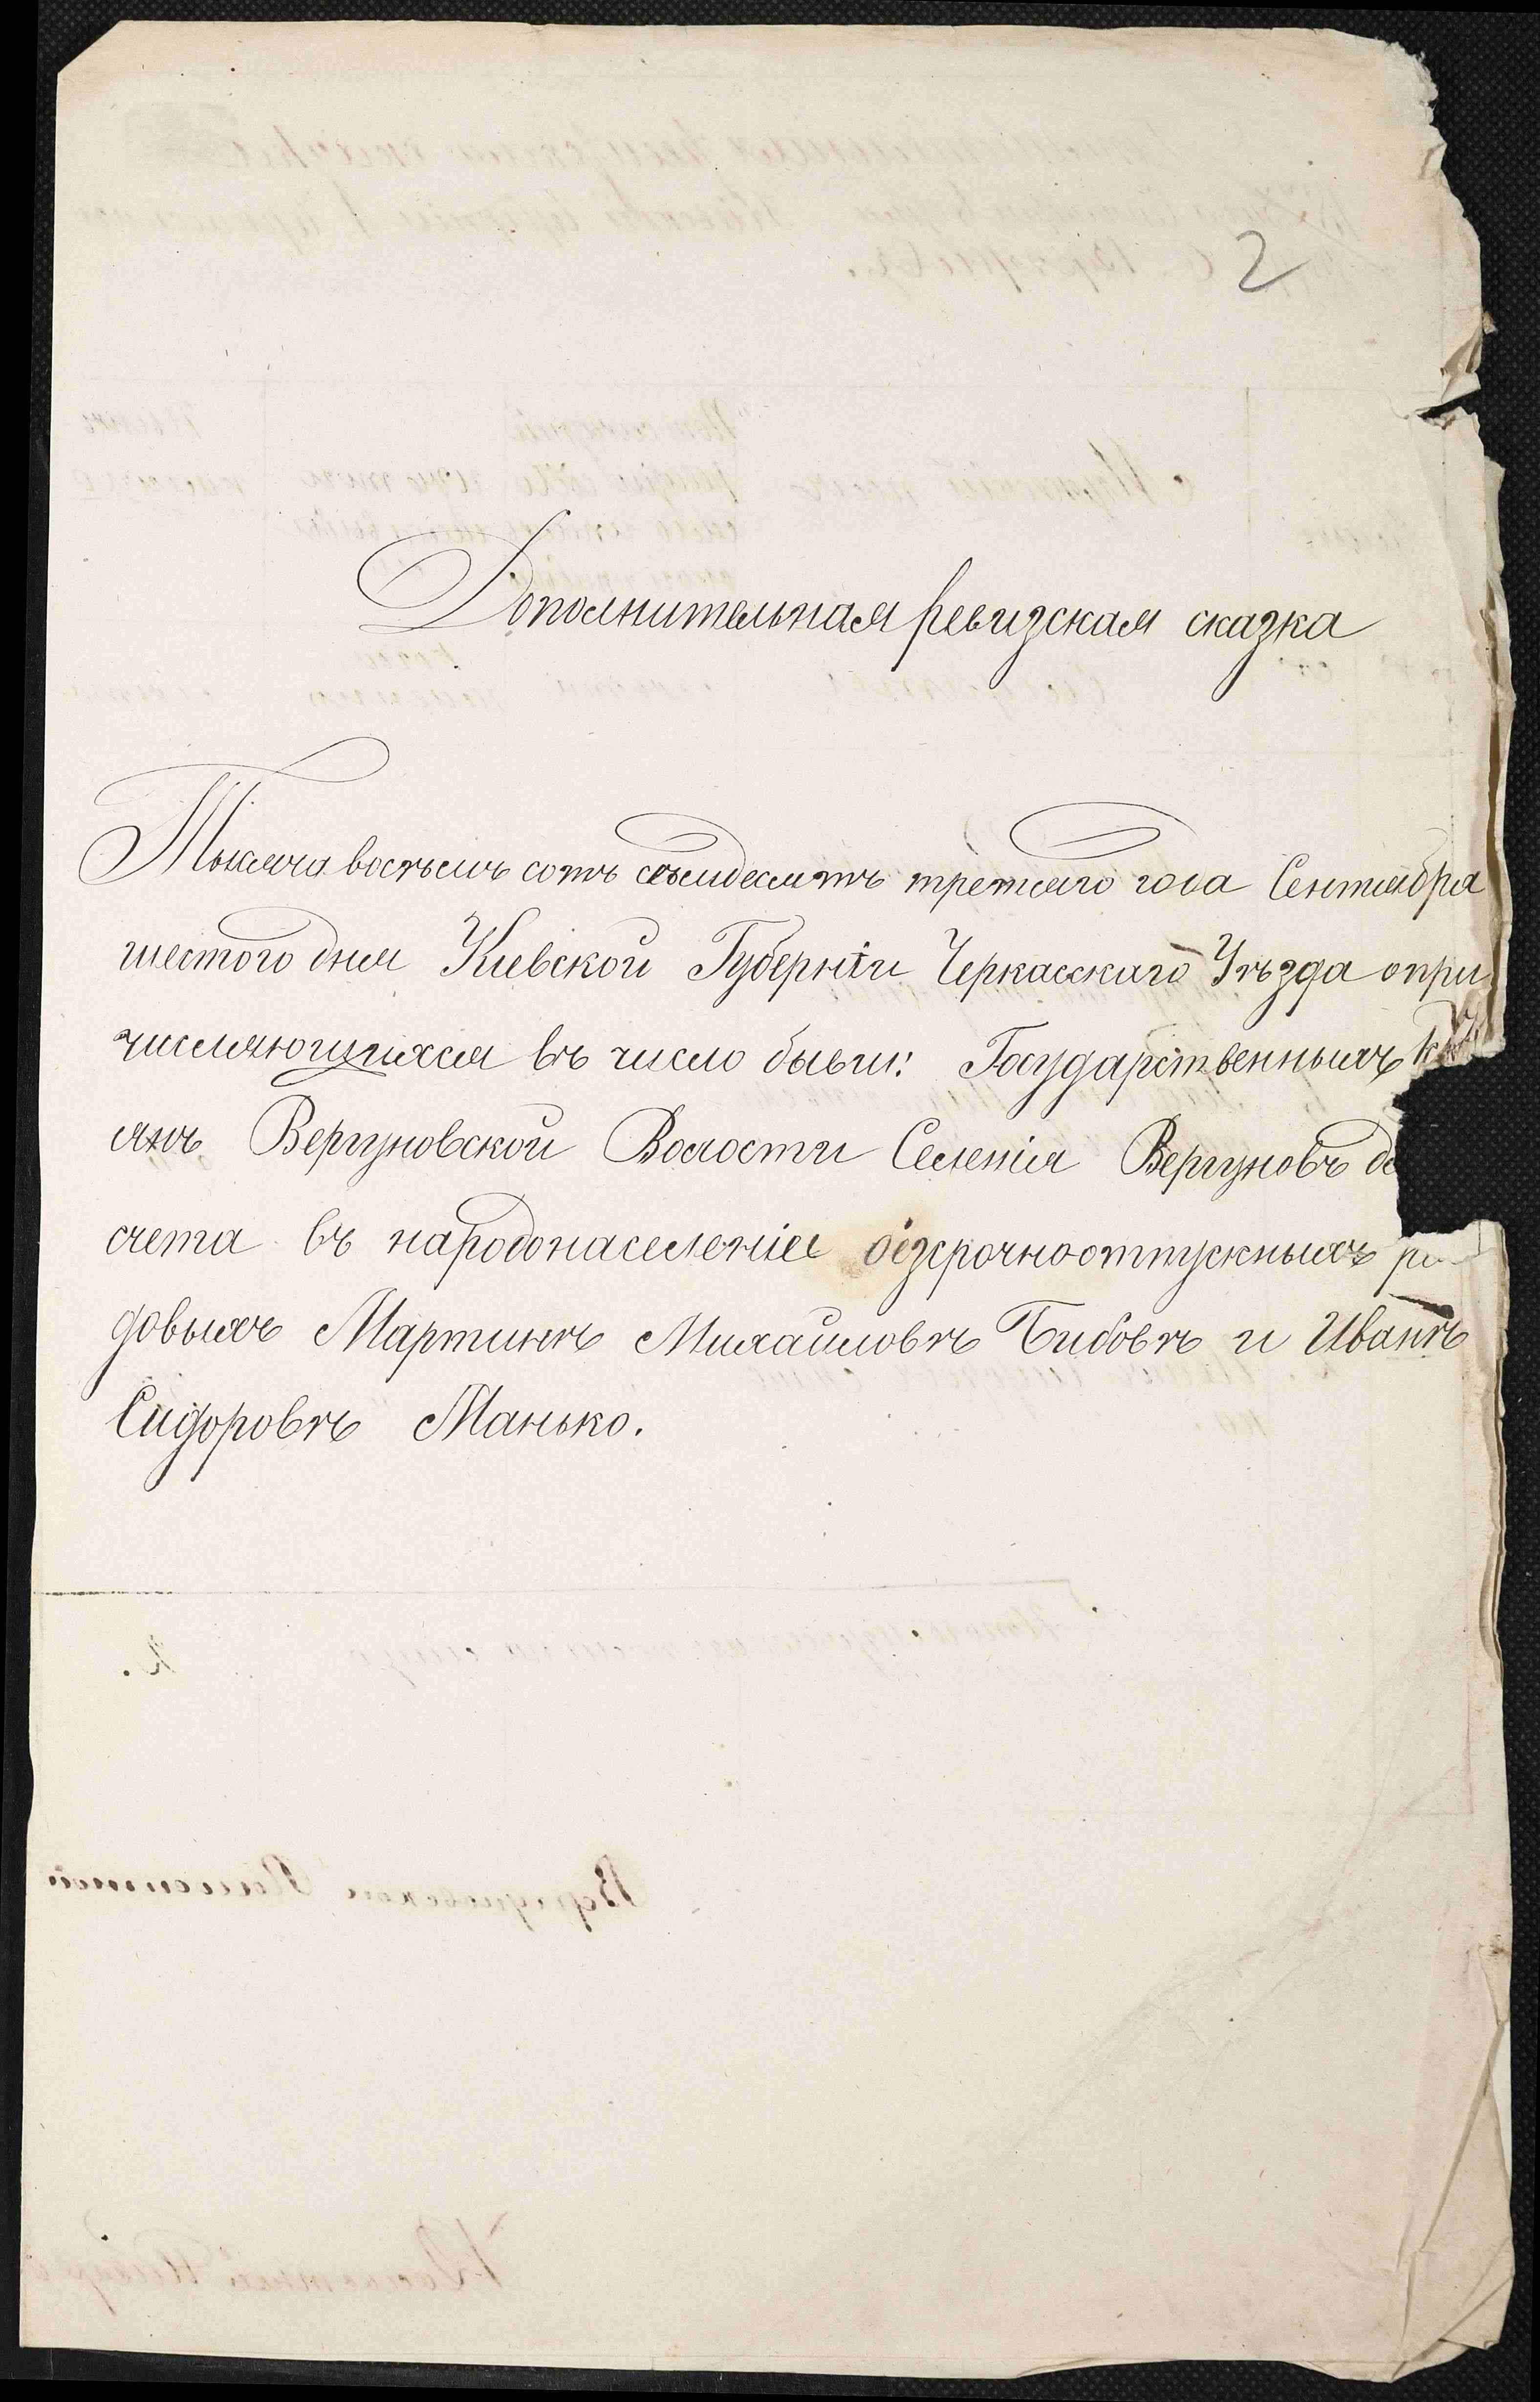 2
Дополнительная ревизская сказка
Тысяча восѣемъ сотъ семьдесятъ третяго года Сентября
шестого дня Киевской Губернiи Черкасскаго Уѣзда опри
числяющихся въ число бывш: Государственныхъ
янъ Вергуновской Волости Селенiя Вергуновъ
счета въ народонаселенiе безсрочноотпускныхъ
довыхъ Мартинѣ Михайловѣ Бибовѣ и Иванѣ
Сидоровѣ Манько.